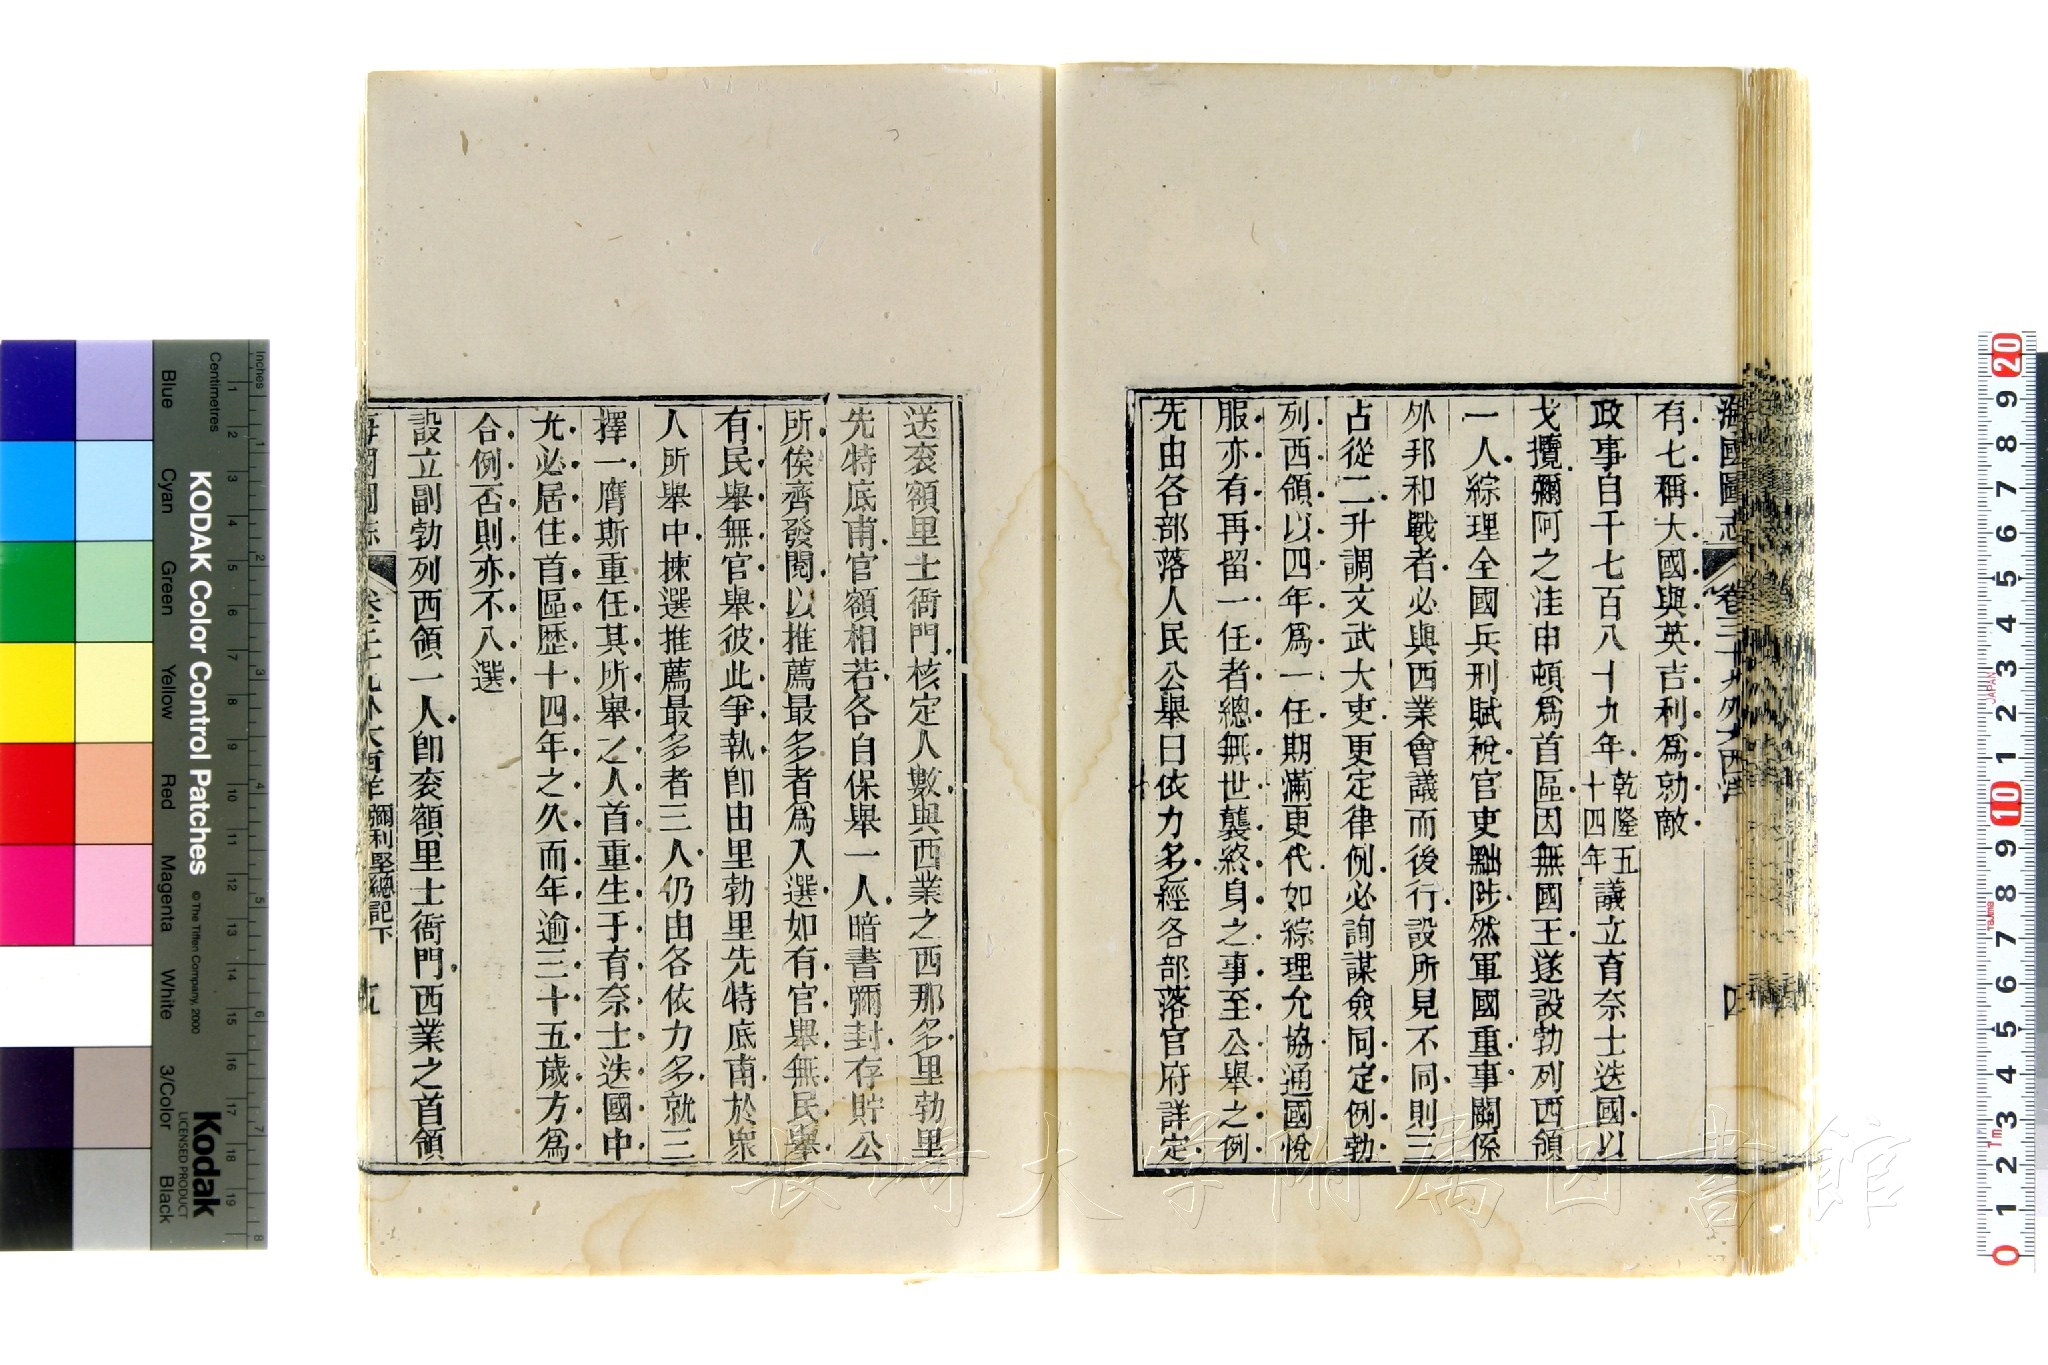 海國圖志 卷三十九外大西洋 四
有七稱大國與英吉利爲勍敵
政事自千七百八十九年乾隆五十四年議立育奈士迭國以
戈攬彌阿之洼申頓爲首區因無國王遂設勃列西領
一人綜理全國兵刑賦稅官吏黜陟然軍國重事關係
外邦和戰者必與西業會議而後行設所見不同則三
占從二升調文武大吏更定律例必詢謀僉同定例勃
列西領以四年爲一任期滿更代如綜理允協通國悅
服亦有再留一任者總無世襲終身之事至公舉之例
先由各部落人民公舉曰依力多經各部落官府詳定
送衮額里士衙門核定人數與西業之西那多里勃里
先特底甫官額相若各自保舉一人暗書彌封存貯公
所俟齊發閱以推薦最多者爲入選如有官舉無民舉
有民舉無官舉彼此爭執卽由里勃里先特底甫於衆
人所舉中揀選推薦最多者三人仍由各依力多就三
擇一膺斯重任其所舉之人首重生于育奈士迭國中
尤必居住首區歷十四年之久而年逾三十五歲方爲
合例否則亦不入選
設立副勃列西領一人卽衮額里士衙門西業之首領
海國圖志 卷三十九外大西洋 彌利堅總記下
KODAK Color Control Patches
© The Tiffen Company, 2000
Kodak
LICENSED PRODUCT
Inches
Centimetres
Blue Cyan Green Yellow Red Magenta White 3/Color Black
1 2 3 4 5 6 7 8 9 10 11 12 13 14 15 16 17 18 19
1 2 3 4 5 6 7 8
20 9 8 7 6 5 4 3 2 1 10 9 8 7 6 5 4 3 2 1 0
JAPAN
Tajima
長崎大学附属図書館